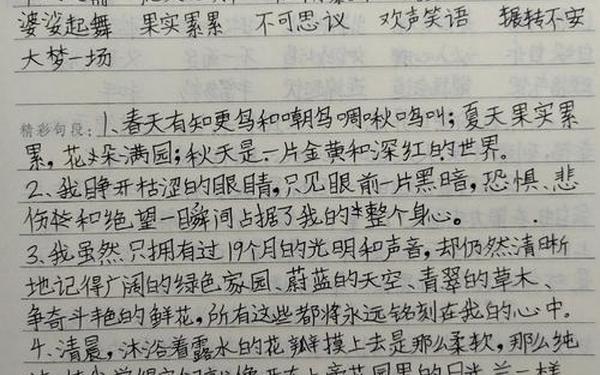 婆娑起舞 果实累累 不可思议 欢声笑语 辗转不安
大梦一场
精彩句段: 1、春天有知更鸟和嘲鸟啁啾鸣叫;夏天果实累
累,花朵满园;秋天是一片金黄和深红的世界。
2、我睁开枯涩的眼睛,只见眼前一片黑暗,恐惧、悲
伤和绝望一瞬间占据了我的整个身心。
3、我虽然只拥有过19个月的光明和声音,却仍然清晰
地记得广阔的绿色家园、蔚蓝的天空、青翠的草木、
争奇斗艳的鲜花,所有这些都将永远铭刻在我的心中。
4、清晨,沐浴着露水的花瓣摸上去是那么柔软,那么纯